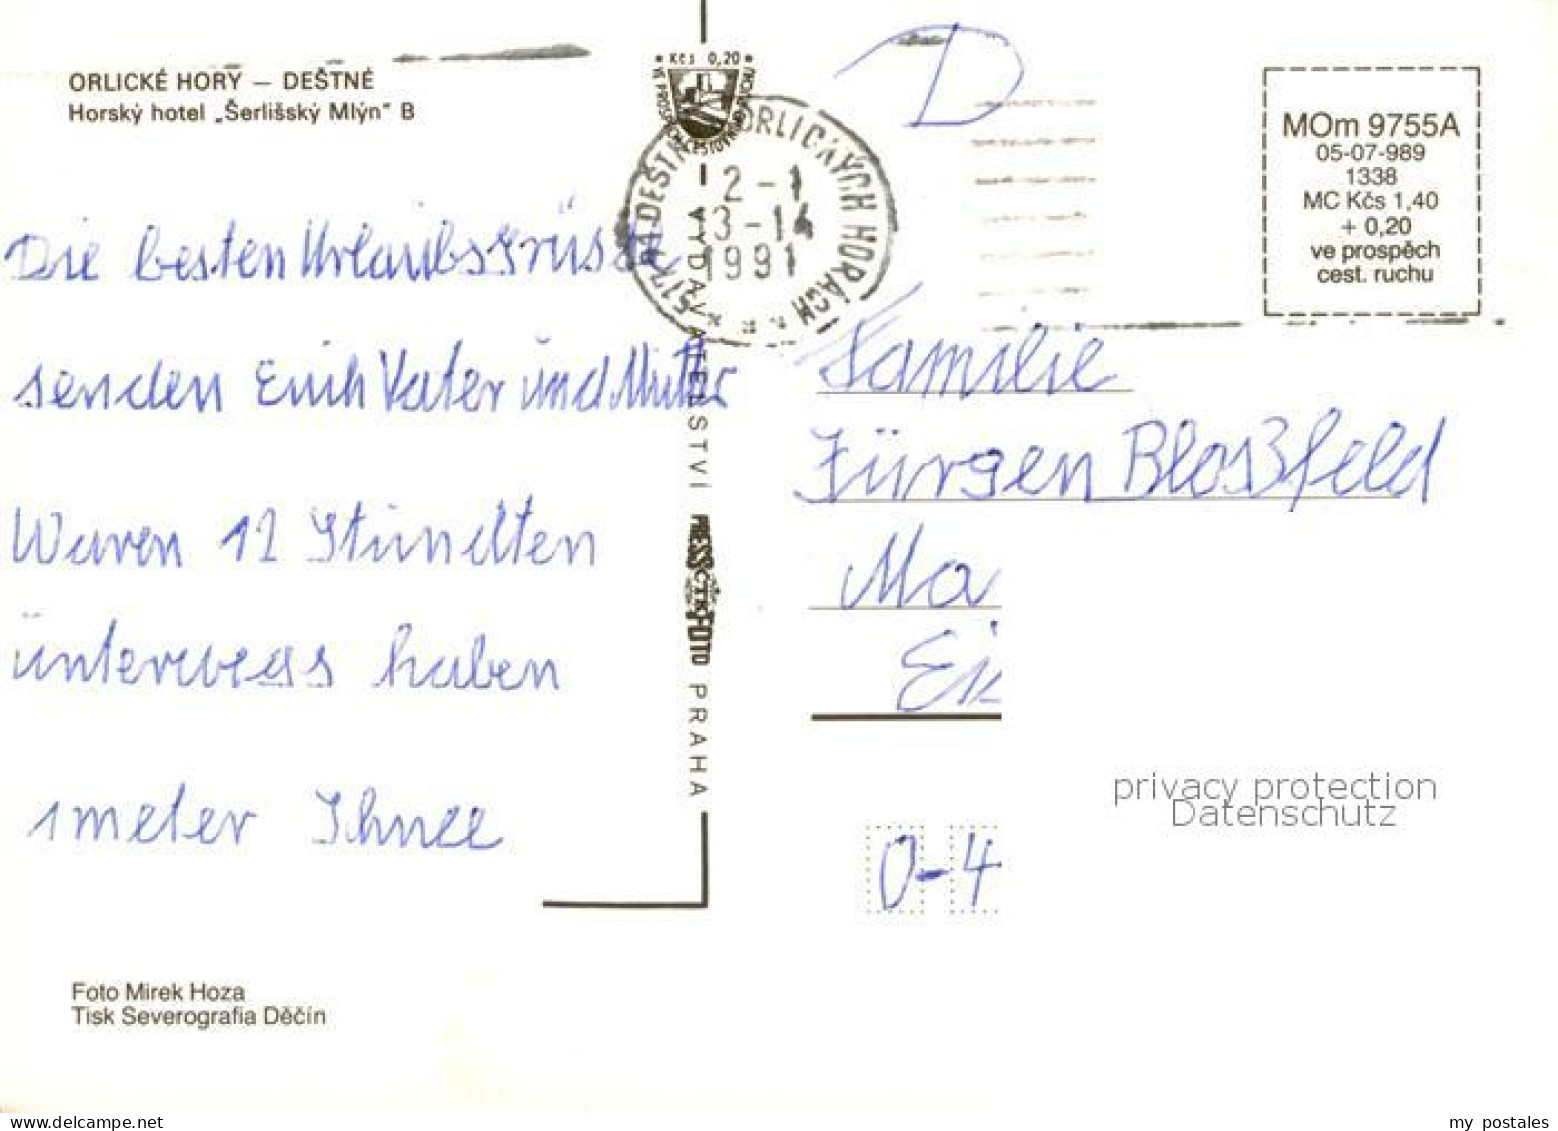 ORLICKÉ HORY — DEŠTNÉ
Horský hotel „Šerlišský Mlýn" B
Die besten Urlaubsgrüsse
senden Euch Vater und Mutter
Waren 12 Stundten
unterwegs haben
1 meter Schnee
Foto Mirek Hoza
Tisk Severografia Děčín
* Kčs 0,20 *
VE PROSPĚCH CESTOVNÍHO RUCHU
DEŠTNÉ V ORLICKÝCH HORÁCH
2-1
3-14
1991
VYDAVATELSTVÍ PRESSFOTO PRAHA
ČTK
D
MOm 9755A
05-07-989
1338
MC Kčs 1,40
+ 0,20
ve prospěch
cest. ruchu
Familie
Jürgen Bloßfeld
Ma
Ei
O-4
privacy protection
Datenschutz
https://www.delcampe.net
my postales